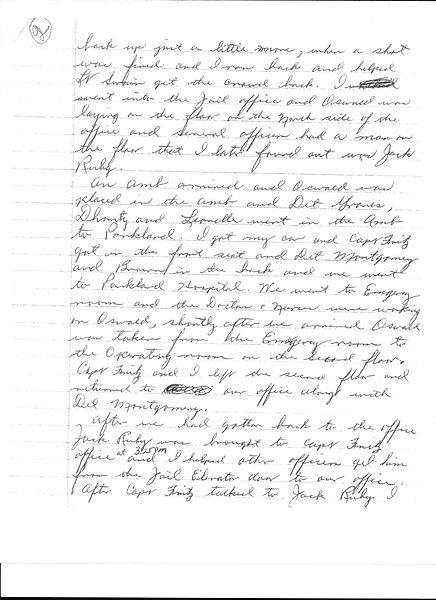 8
back up just a little more, when a shot
was fired and I ran back and helped
Lt Swain get the crowd back. I
went into the Jail office and Oswald was
laying on the floor on the North side of the
office and several officers had a man on
the floor that I later found out was Jack
Ruby.
An Amb arrived and Oswald was
placed in the amb and Det Graves,
Dhority and Leavelle went in the Amb
to Parkland. I got my car and Capt Fritz
got in the front seat and Det Montgomery
and Brown in the back and we went
to Parkland Hospital. We went to Emergency
room and the Doctor & Nurses were working
on Oswald, shortly after we arrived Oswald
was taken from the Emergency room to
the Operating room on the second floor.
Capt Fritz and I left the second floor and
returned to our office along with
Det Montgomery.
After we had gotten back to the office
Jack Ruby was brought to Capt Fritz
office at 3:15pm and I helped other officers get him
from the Jail Elevator door to our office.
After Capt Fritz talked to Jack Ruby I